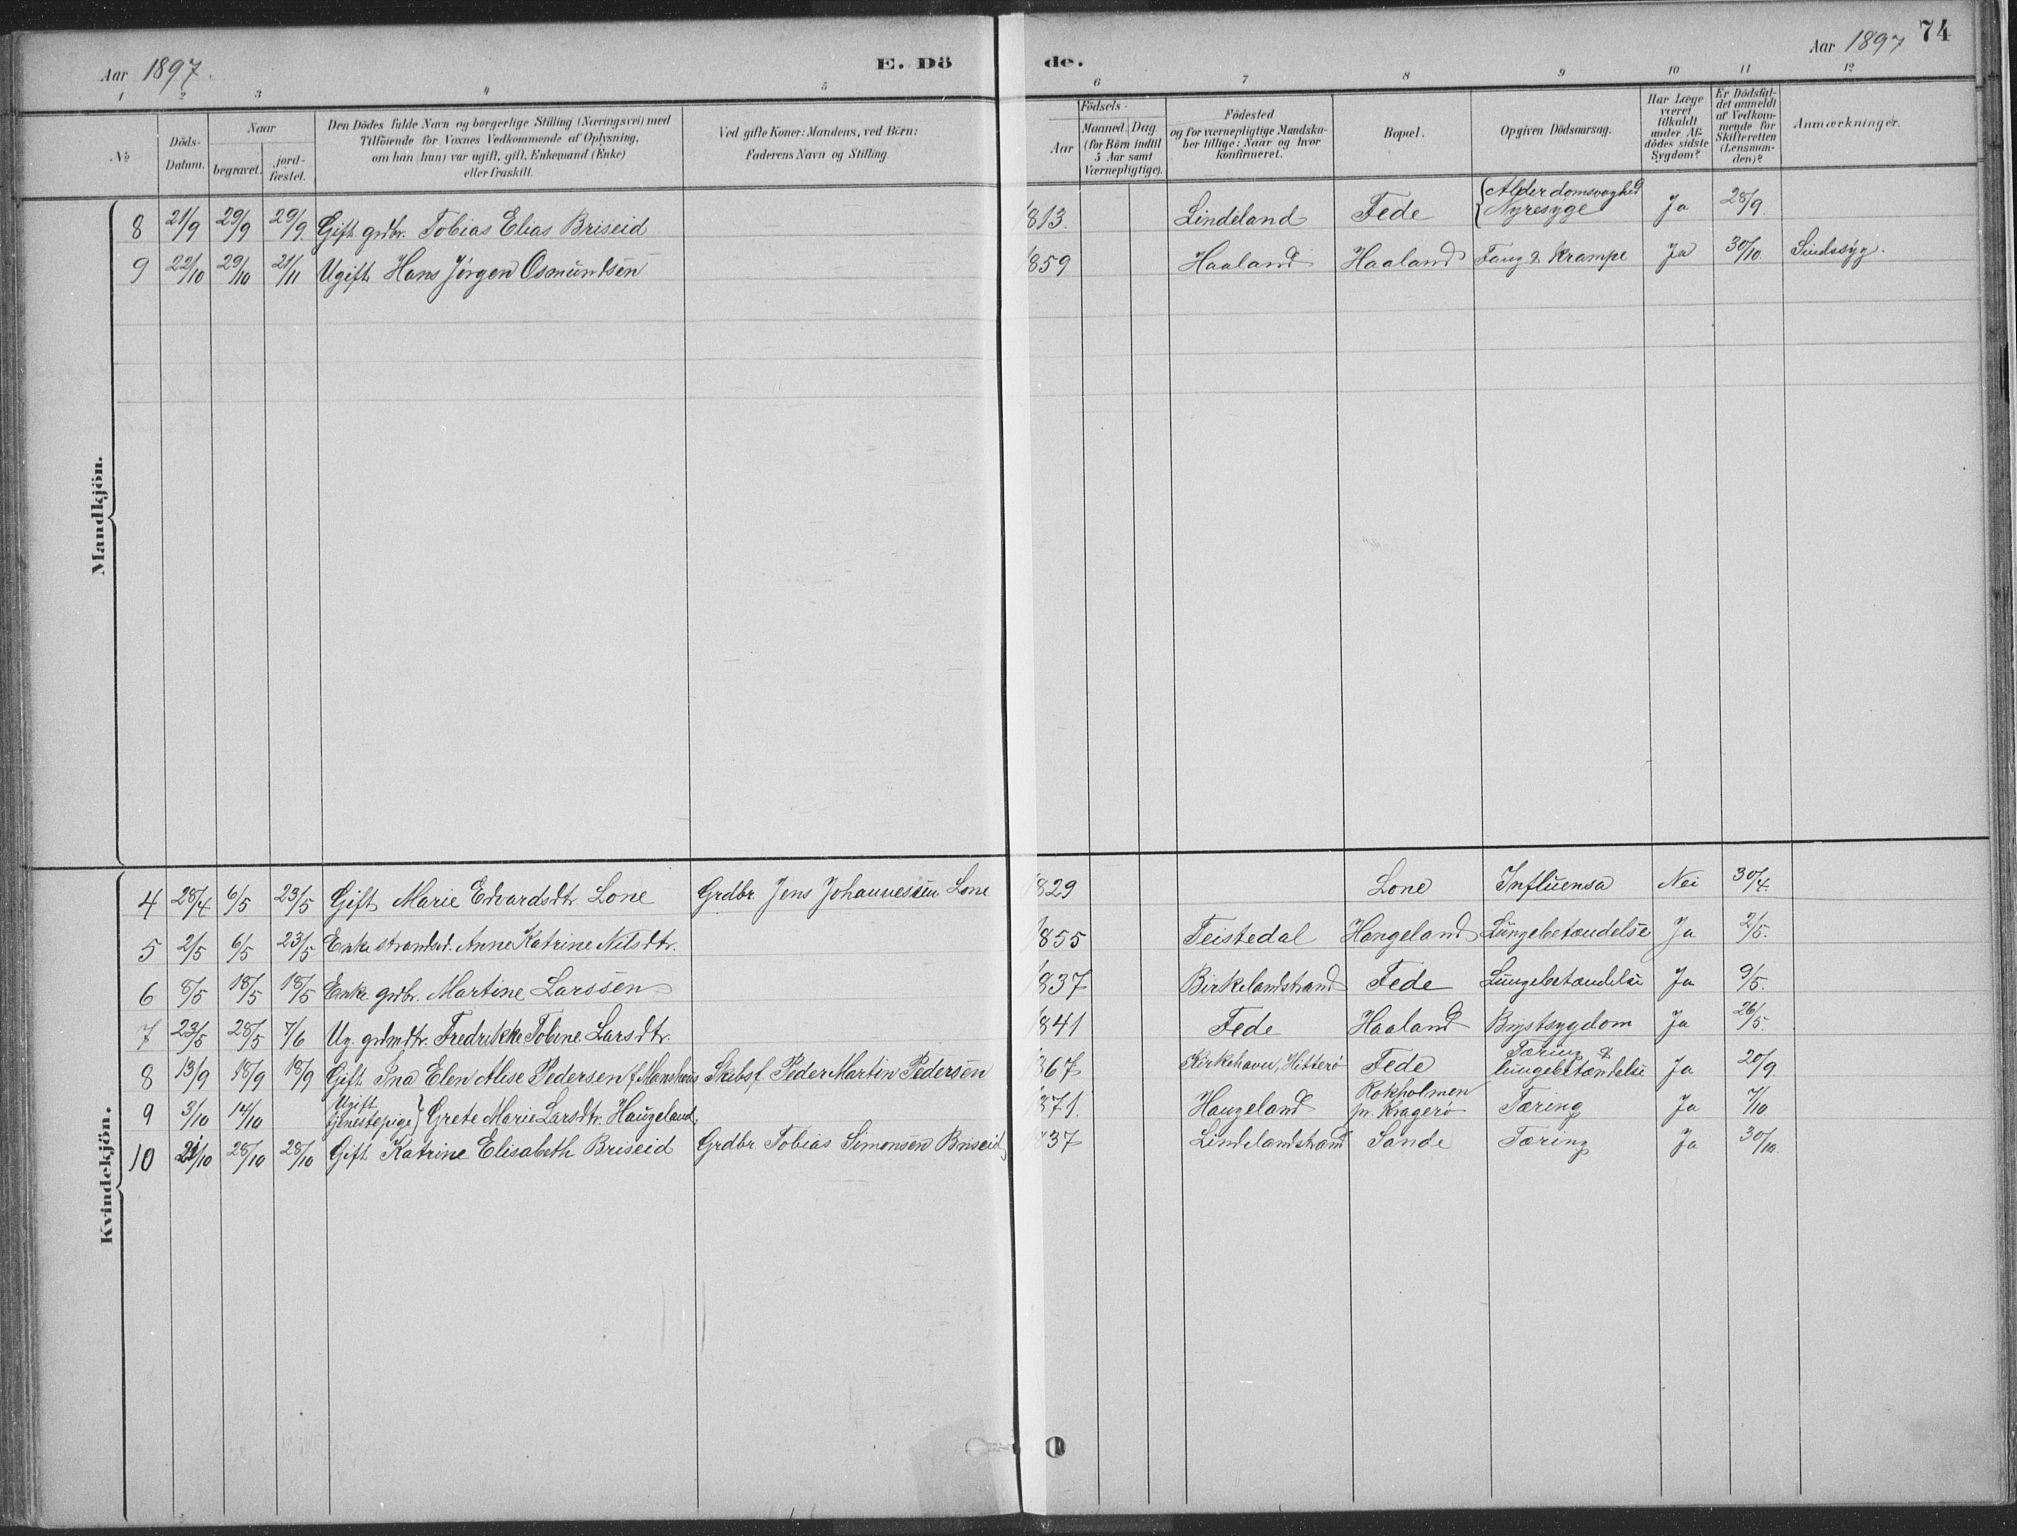 Aar 1897.
E. Dö de.
Aar 1897
74
1 2 3 4 5 6 7 8 9 10 11 12
№
Döds-Datum.
Naar
begravet.
jord-fæstet.
Den Dödes fulde Navn og borgerlige Stilling (Næringsvei) med
Tilföiende for Voxnes Vedkommende af Oplysning,
om han (hun) var ugift, gift, Enkemand (Enke)
eller fraskilt.
Ved gifte Koner: Mandens, ved Börn:
Faderens Navn og Stilling
Födsels-
Aar
Maaned. Dag
(for Börn indtil
5 Aar samt
Værnepligtige).
Födested
og for værnepligtige Mandska-
ber tillige: Naar og hvor
konfirmeret.
Bopæl.
Opgiven Dödsaarsag.
Har Læge
været
tilkaldt
under Af-
dödes sidste
Sygdom?
Er Dödsfal-
det anmeldt
af Vedkom-
mende for
Skifteretten
(Lensman-
den)?
Anmærkninger.
Mandkjön.
8 21/9 29/9 29/9. Gift grdbr. Tobias Elias Briseid 1813. Lindeland Fede {Alderdomsvaghed Nyresyge Ja 28/9.
9 22/10 29/10 21/11 Ugift Hans Jörgen Osmundsen 1859 Haaland Haaland Fang & Krampe Ja 30/10. Sindssyg.
Kvindekjön.
4 28/4 6/5 23/5 Gift Marie Edvardsdtr. Lone Grdbr. Jens Johannessen Lone 1829 Lone Influensa Nei 30/4.
5 2/5 6/5 23/5 Enke strandsd. Anne Katrine Nilsdtr. 1855 Feistedal Haugeland Lungebetændelse Ja 2/5.
6 8/5 18/5 18/5 Enke grdbr. Martine Larssen 1837 Birkelandstrand Fede Lungebetændelse Ja 9/5.
7 23/5 28/5 7/6 Ug. grdmdtr. Fredrikke Tobine Larsdtr. 1841 Fede Haaland Brystsygdom Ja 26/5.
8 13/9 18/9 18/9 Gift Ina Elen Alise Pedersen f. Monshaus Skibsf. Peder Martin Pedersen 1867 Kirkehavn, Hitterö Fede Tæring & lungebetændelse Ja 20/9
9 3/10 14/10 Ugift tjenestepige} Grete Marie Larsdtr. Haugeland 1871. Haugeland Rokholmen pr. Kragerö Tæring Ja 7/10
10 21/10 28/10 28/10 Gift Katrine Elisabeth Briseid Grdbr. Tobias Simonsen Briseid 1837 Lindelandstrand Sande Tæring Ja 30/10.